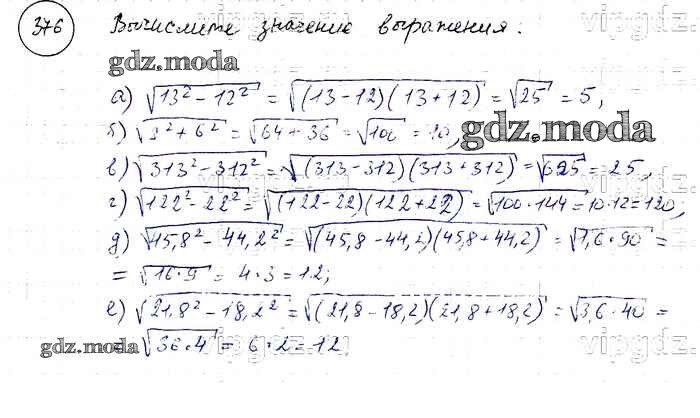 376 Вычислите значение выражения:
gdz.moda
а) √13² - 12² = √(13-12)(13+12) = √25 = 5,
б) √8² + 6² = √64 + 36 = √100 = 10,
gdz.moda
в) √313² - 312² = √(313-312)(313+312) = √625 = 25,
г) √122² - 22² = √(122-22)(122+22) = √100·144 = 10·12 = 120,
д) √45,8² - 44,2² = √(45,8-44,2)(45,8+44,2) = √1,6·90 =
= √16·9 = 4·3 = 12;
е) √21,8² - 18,2² = √(21,8-18,2)(21,8+18,2) = √3,6·40 =
gdz.moda
= √36·4 = 6·2 = 12.
vipgdz.
vipgdz.
vipgdz.
vipgdz.